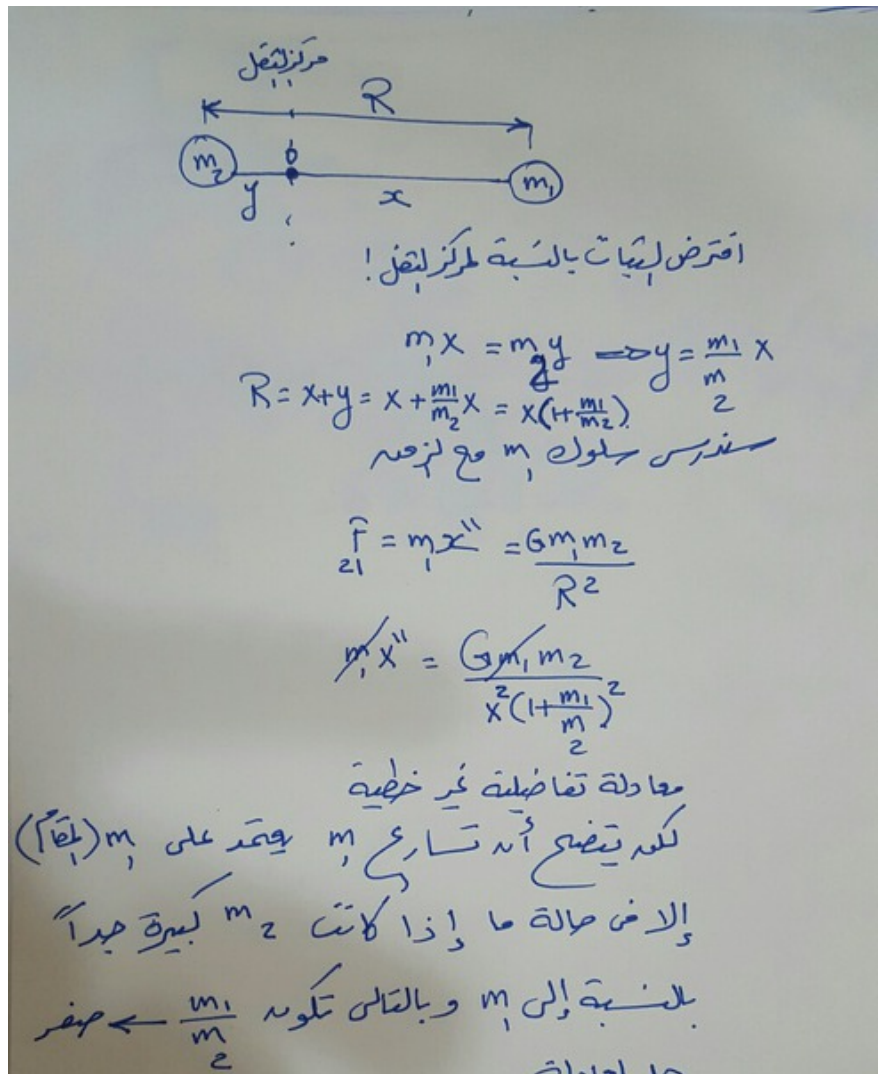 مركز الثقل
R
m₂ y o x m₁
افترض الثبات بالنسبة لمركز الثقل !
m₁x = m₂y ⇒ y = m₁/m₂ x
R = x+y = x + m₁/m₂ x = x(1+m₁/m₂)
سندرس سلوك m₁ مع الزمن
F₂₁ = m₁x'' = Gm₁m₂/R²
m₁x'' = Gm₁m₂/x²(1+m₁/m₂)²
معادلة تفاضلية غير خطية
لكن يتضح أن تسارع m₁ يعتمد على m₁ (المقام)
إلا في حالة ما إذا كانت m₂ كبيرة جداً
بالنسبة إلى m₁ وبالتالي تكون m₁/m₂ → صفر